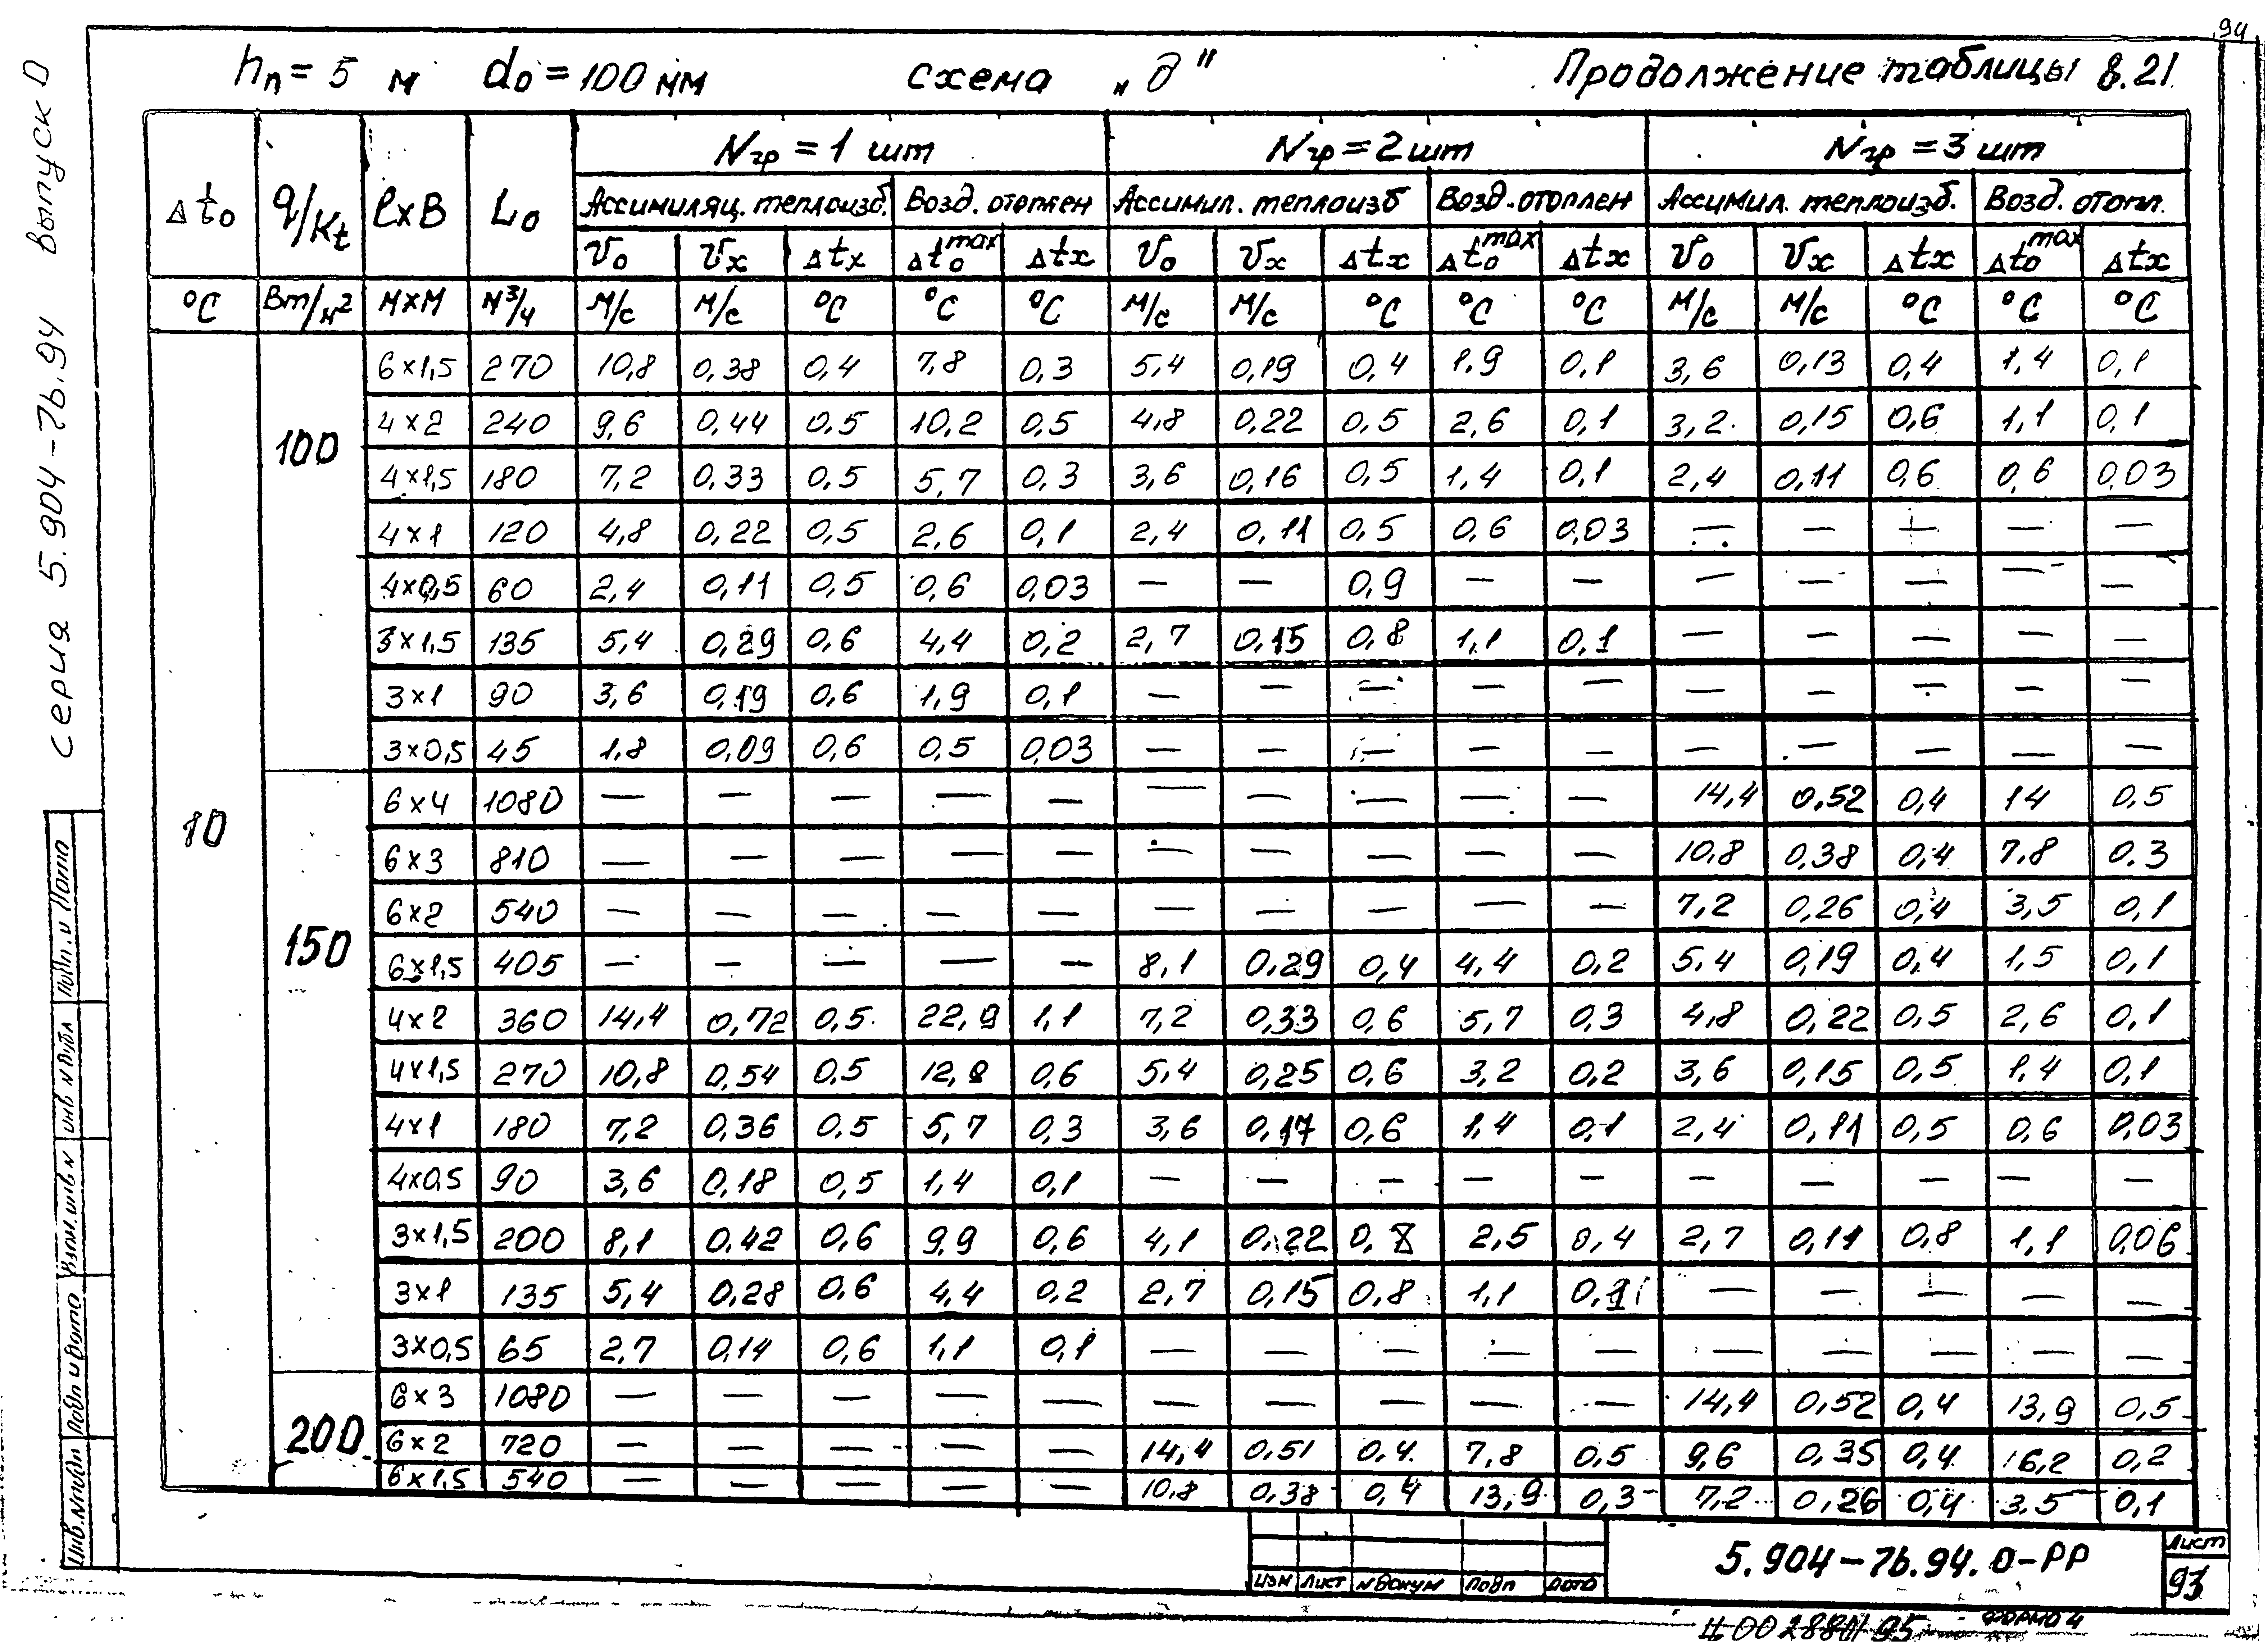 94
hп = 5 м d₀ = 100 мм схема „д" Продолжение таблицы 8.21
серия 5.904-7б.94 выпуск 0
Δt₀ q/Kt ℓxB L₀ Nгр = 1 шт Nгр = 2 шт Nгр = 3 шт
Ассимиляц. теплоизб. Возд. отоплен Ассимил. теплоизб Возд. отоплен Ассимил. теплоизб. Возд. отопл.
v₀ vx Δtx Δt₀max Δtx v₀ vx Δtx Δt₀max Δtx v₀ vx Δtx Δt₀max Δtx
°C Вт/м² мxм м³/ч м/с м/с °C °C °C м/с м/с °C °C °C м/с м/с °C °C °C
10
100
6x1,5 270 10,8 0,38 0,4 7,8 0,3 5,4 0,19 0,4 1,9 0,1 3,6 0,13 0,4 1,4 0,1
4x2 240 9,6 0,44 0,5 10,2 0,5 4,8 0,22 0,5 2,6 0,1 3,2 0,15 0,6 1,1 0,1
4x1,5 180 7,2 0,33 0,5 5,7 0,3 3,6 0,16 0,5 1,4 0,1 2,4 0,11 0,6 0,6 0,03
4x1 120 4,8 0,22 0,5 2,6 0,1 2,4 0,11 0,5 0,6 0,03 — — — — —
4x0,5 60 2,4 0,11 0,5 0,6 0,03 — — 0,9 — — — — — — —
3x1,5 135 5,4 0,29 0,6 4,4 0,2 2,7 0,15 0,8 1,1 0,1 — — — — —
3x1 90 3,6 0,19 0,6 1,9 0,1 — — — — — — — — — —
3x0,5 45 1,8 0,09 0,6 0,5 0,03 — — — — — — — — — —
150
6x4 1080 — — — — — — — — — — 14,4 0,52 0,4 14 0,5
6x3 810 — — — — — — — — — — 10,8 0,38 0,4 7,8 0.3
6x2 540 — — — — — — — — — — 7,2 0,26 0,4 3,5 0,1
6x1,5 405 — — — — — 8,1 0,29 0,4 4,4 0,2 5,4 0,19 0,4 1,5 0,1
4x2 360 14,4 0,72 0,5 22,9 1,1 7,2 0,33 0,6 5,7 0,3 4,8 0,22 0,5 2,6 0,1
4x1,5 270 10,8 0,54 0,5 12,8 0,6 5,4 0,25 0,6 3,2 0,2 3,6 0,15 0,5 1,4 0,1
4x1 180 7,2 0,36 0,5 5,7 0,3 3,6 0,17 0,6 1,4 0,1 2,4 0,11 0,5 0,6 0,03
4x0,5 90 3,6 0,18 0,5 1,4 0,1 — — — — — — — — — —
3x1,5 200 8,1 0,42 0,6 9,9 0,6 4,1 0,22 2,5 0,4 2,7 0,11 0,8 1,1 0,06
3x1 135 5,4 0,28 0,6 4,4 0,2 2,7 0,15 0,8 1,1 0,1 — — — — —
3x0,5 65 2,7 0,14 0,6 1,1 0,1 — — — — — — — — — —
200
6x3 1080 — — — — — — — — — — 14,4 0,52 0,4 13,9 0,5
6x2 720 — — — — — 14,4 0,51 0,4 7,8 0,5 9,6 0,35 0,4 16,2 0,2
6x1,5 540 — — — — — 10,8 0,38 0,4 13,9 0,3 7,2 0,26 0,4 3.5 0,1
Инв.№подл Подп и дата Взам.инв N инв N дубл Подп. и дата
изм лист N докум подп дата
5.904-7б.94.0-РР
Лист
93
Ц00288011 95
ФОРМА 4